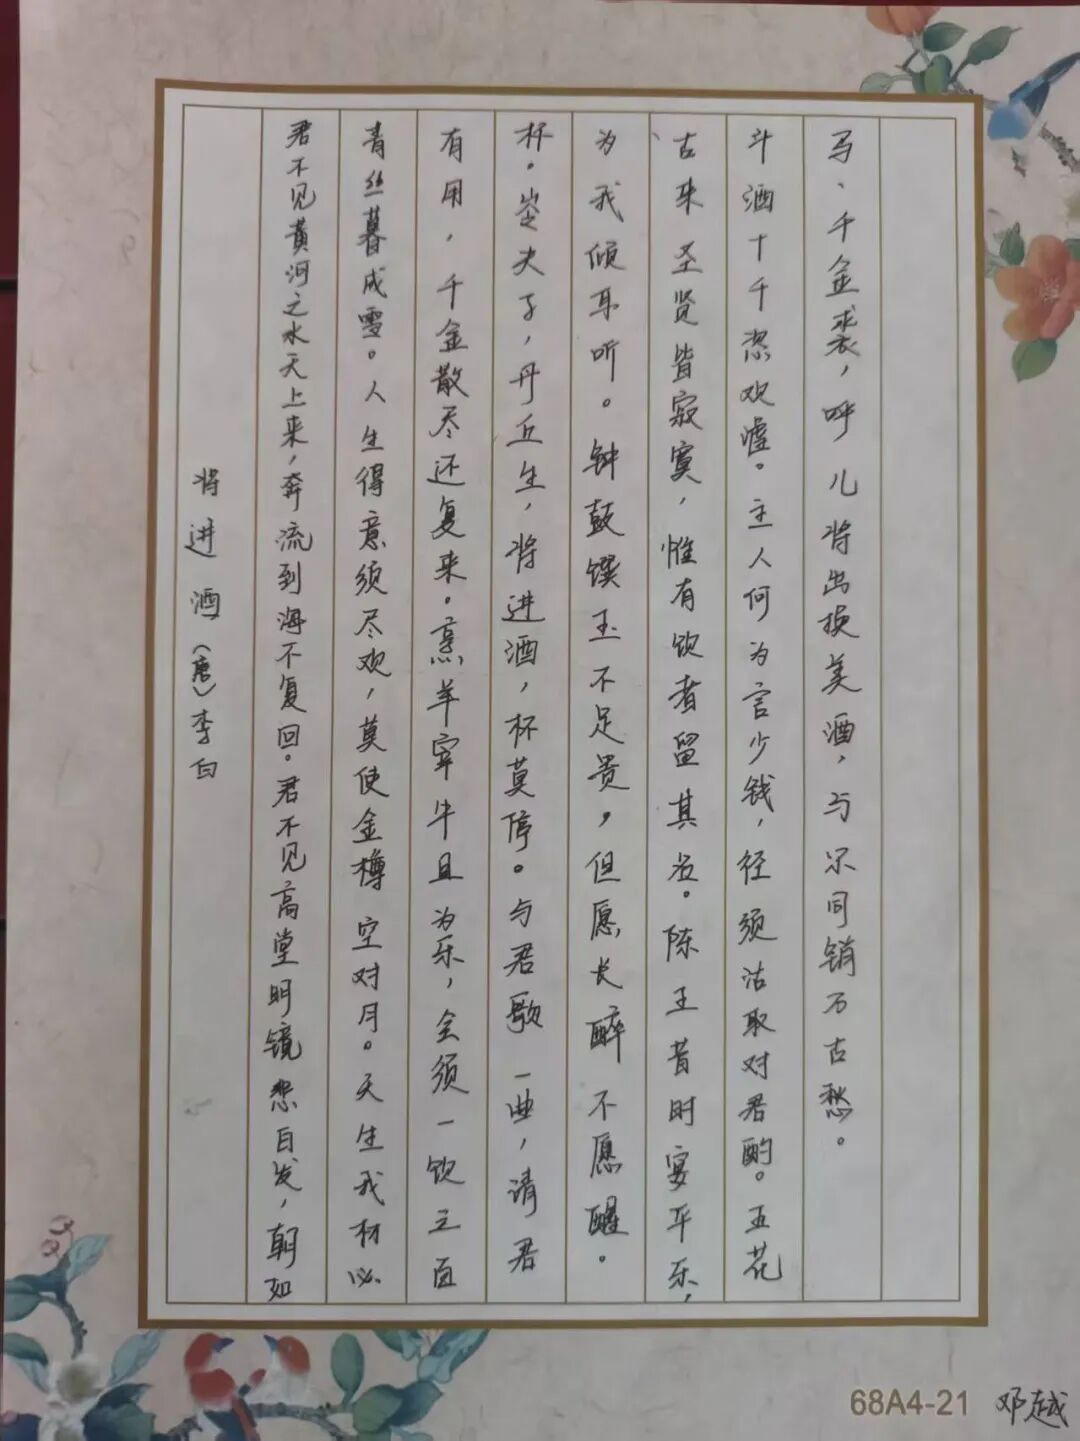 将进酒（唐）李白
君不见黄河之水天上来，奔流到海不复回。君不见高堂明镜悲白发，朝如
青丝暮成雪。人生得意须尽欢，莫使金樽空对月。天生我材必
有用，千金散尽还复来。烹羊宰牛且为乐，会须一饮三百
杯。岑夫子，丹丘生，将进酒，杯莫停。与君歌一曲，请君
为我倾耳听。钟鼓馔玉不足贵，但愿长醉不愿醒。
古来圣贤皆寂寞，惟有饮者留其名。陈王昔时宴平乐，
斗酒十千恣欢谑。主人何为言少钱，径须沽取对君酌。五花
马、千金裘，呼儿将出换美酒，与尔同销万古愁。
68A4-21
邓越